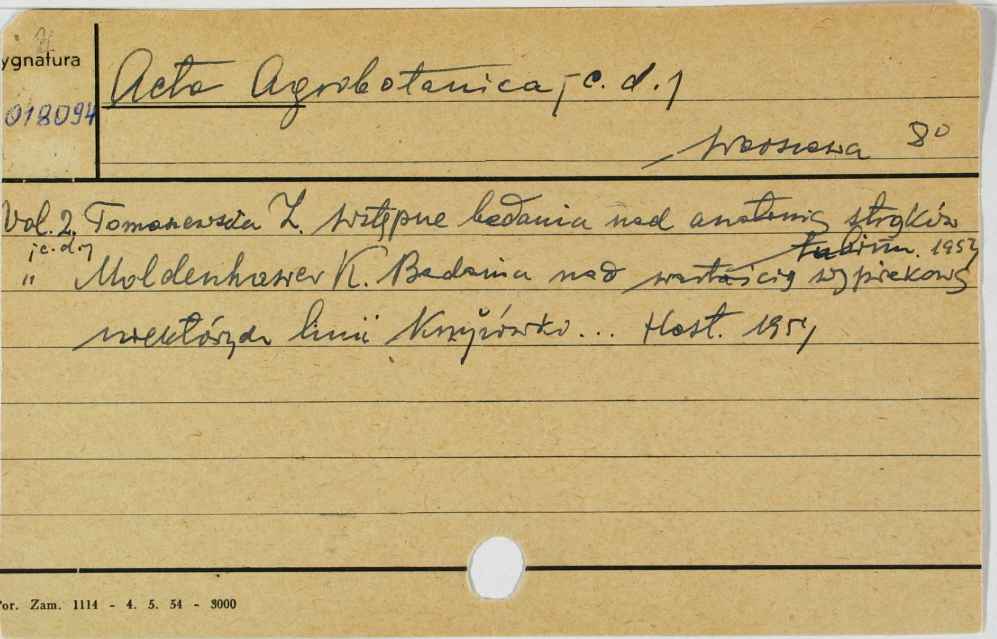 ygnatura
018094
Acta Agrobotanica, c. d.
Warszawa 8°
Vol. 2. Tomaszewska Z. Wstępne badania nad anatomią strąków
c. d. Lubinu. 1954
" Moldenhawer K. Badania nad wartością wypiekową
niektórych linii Krzyżówki... Host. 1954
or. Zam. 1114 - 4. 5. 54 - 3000